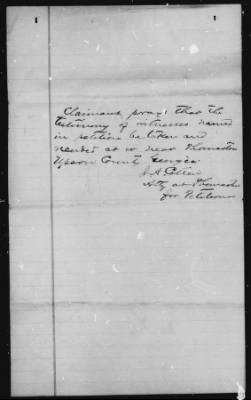 1 1
Claimant prays that the
testimony of witnesses named
in petition be taken and
at or near Thomaston
Upson County Georgia
J. A.
Atty at
for Petitioner